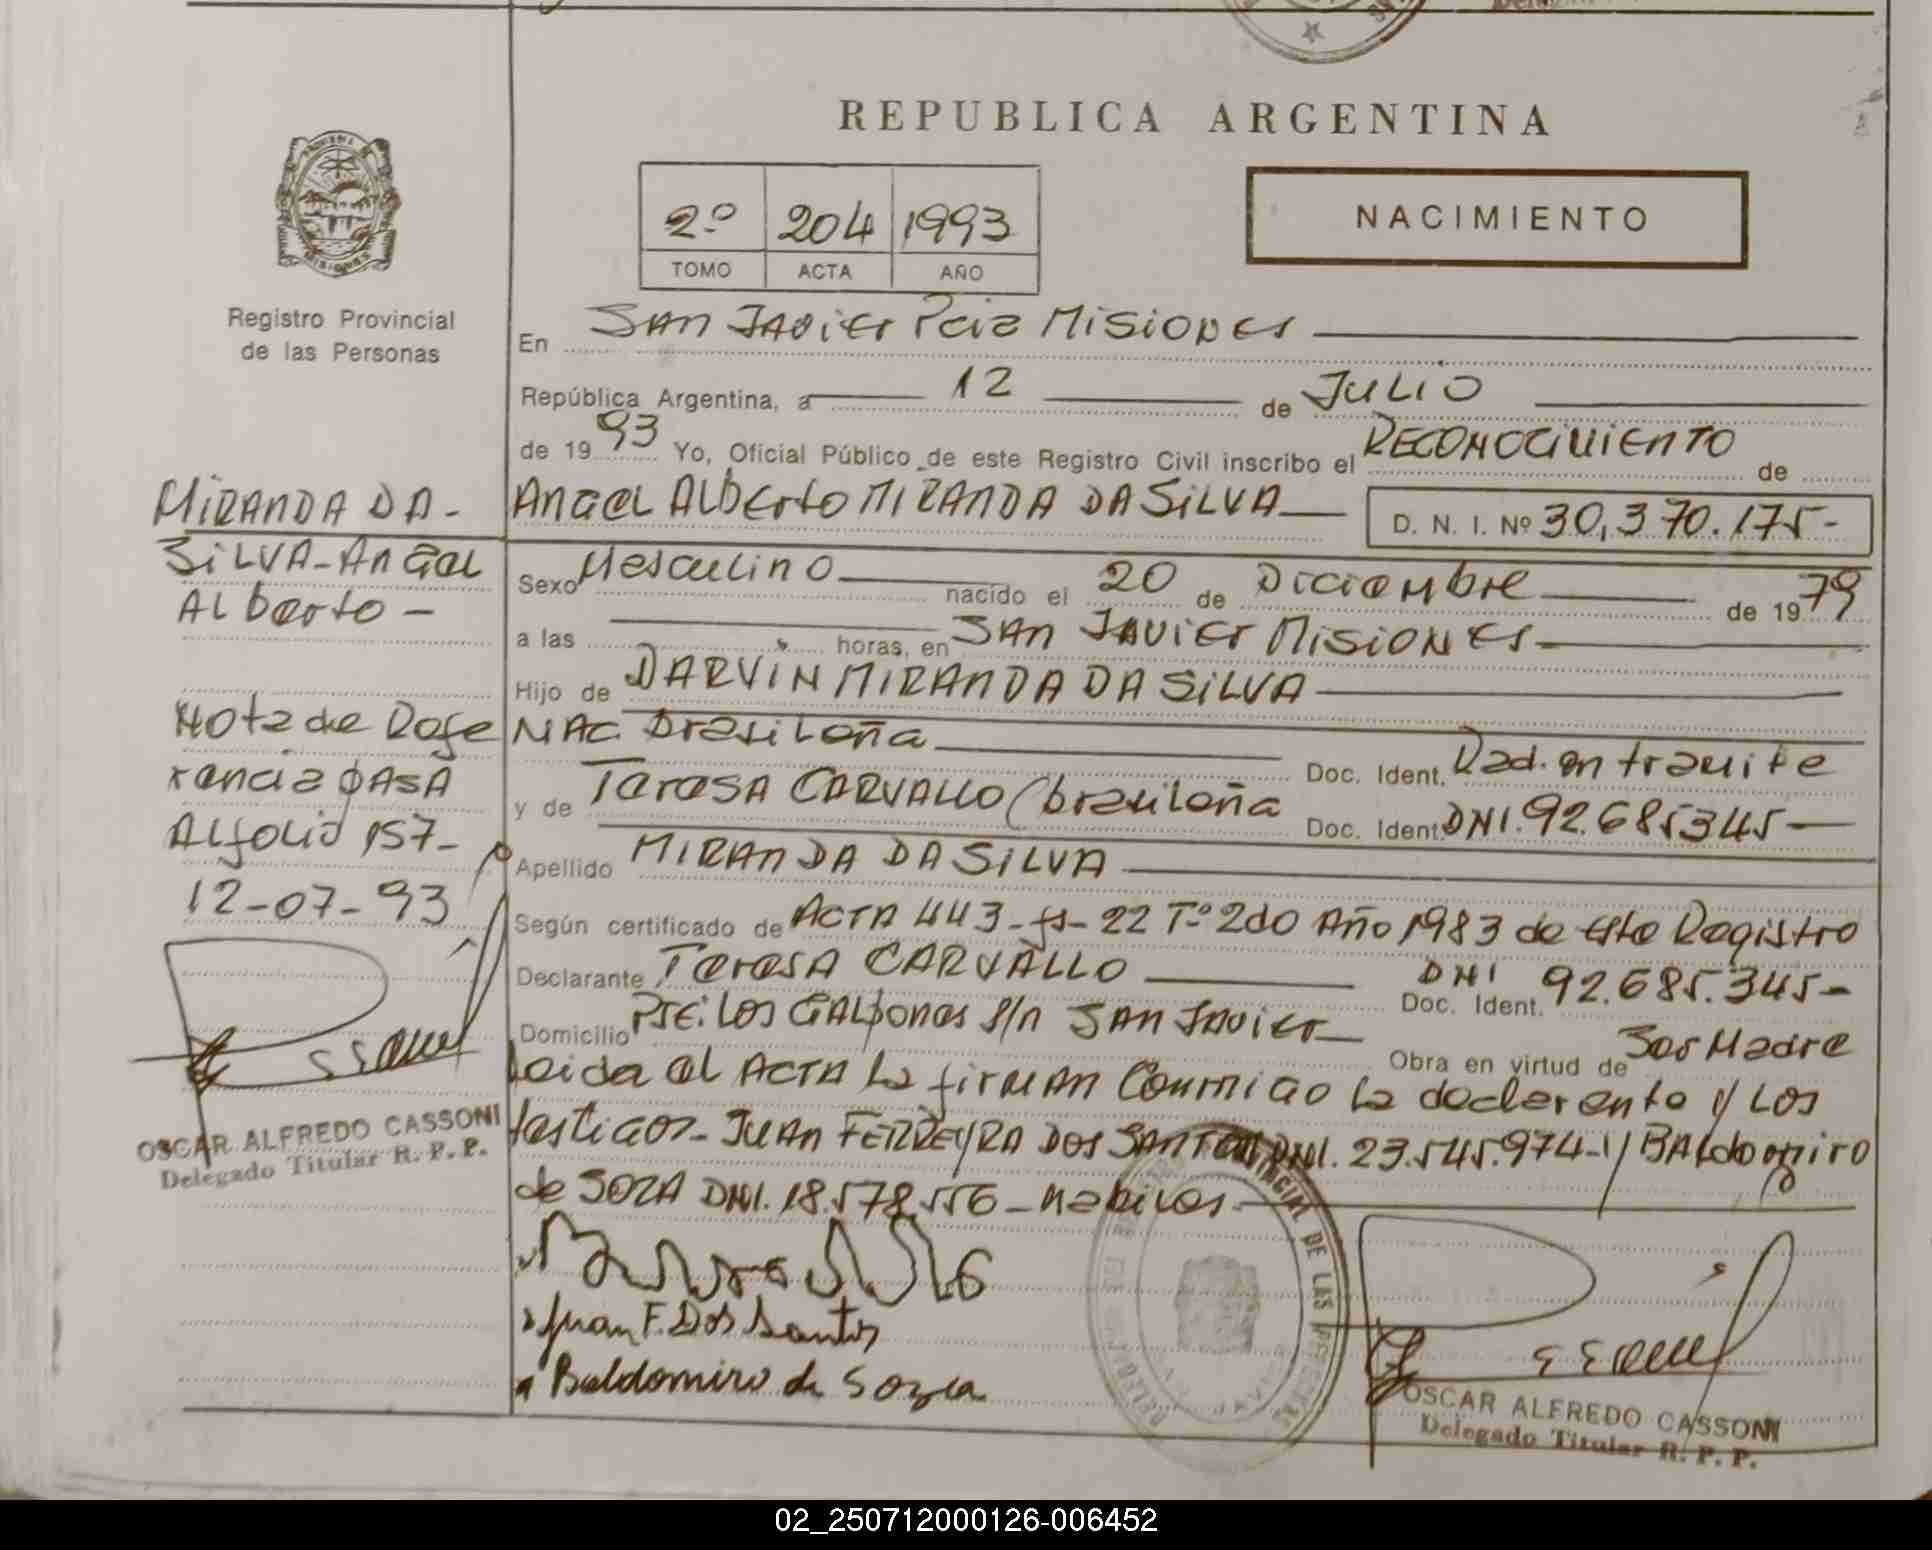 REPUBLICA ARGENTINA
2º 204 1993
TOMO ACTA AÑO
NACIMIENTO
Registro Provincial
de las Personas
En San Javier Pcia Misiones
República Argentina, a 12 de Julio
de 1993 Yo, Oficial Público de este Registro Civil inscribo el RECONOCIMIENTO de
Angel Alberto MIRANDA DA SILVA D. N. I. Nº 30,370.175-
Sexo Masculino nacido el 20 de Diciembre de 1979
a las horas, en San Javier Misiones
Hijo de DARVIN MIRANDA DA SILVA
Nac. Brasileña Doc. Ident. Rad. en tramite
y de Teresa CARVALLO (brasileña Doc. Ident. DNI. 92.685345
Apellido MIRANDA DA SILVA
Según certificado de Acta 443-fs-22 Tº 2do Año 1983 de este Registro
Declarante Teresa CARVALLO Doc. Ident. DNI 92.685.345-
Domicilio Pje: Los Galpones s/n San Javier Obra en virtud de Ser Madre
Leida el Acta la firman Conmigo la declarente y Los
testigos- Juan FERREYRA DOS SANTOS DNI. 23.545.974-y BALdomiro
de SOZA DNI. 18.578.556-habiles-
Juan F. Dos Santos
Baldomiro de Soza
OSCAR ALFREDO CASSONI
Delegado Titular R. P. P.
MIRANDA DA-
SILVA-Angel
Alberto-
Nota de Refe
rencia pasa
Al folio 157-
12-07-93
OSCAR ALFREDO CASSONI
Delegado Titular R. P. P.
02_250712000126-006452